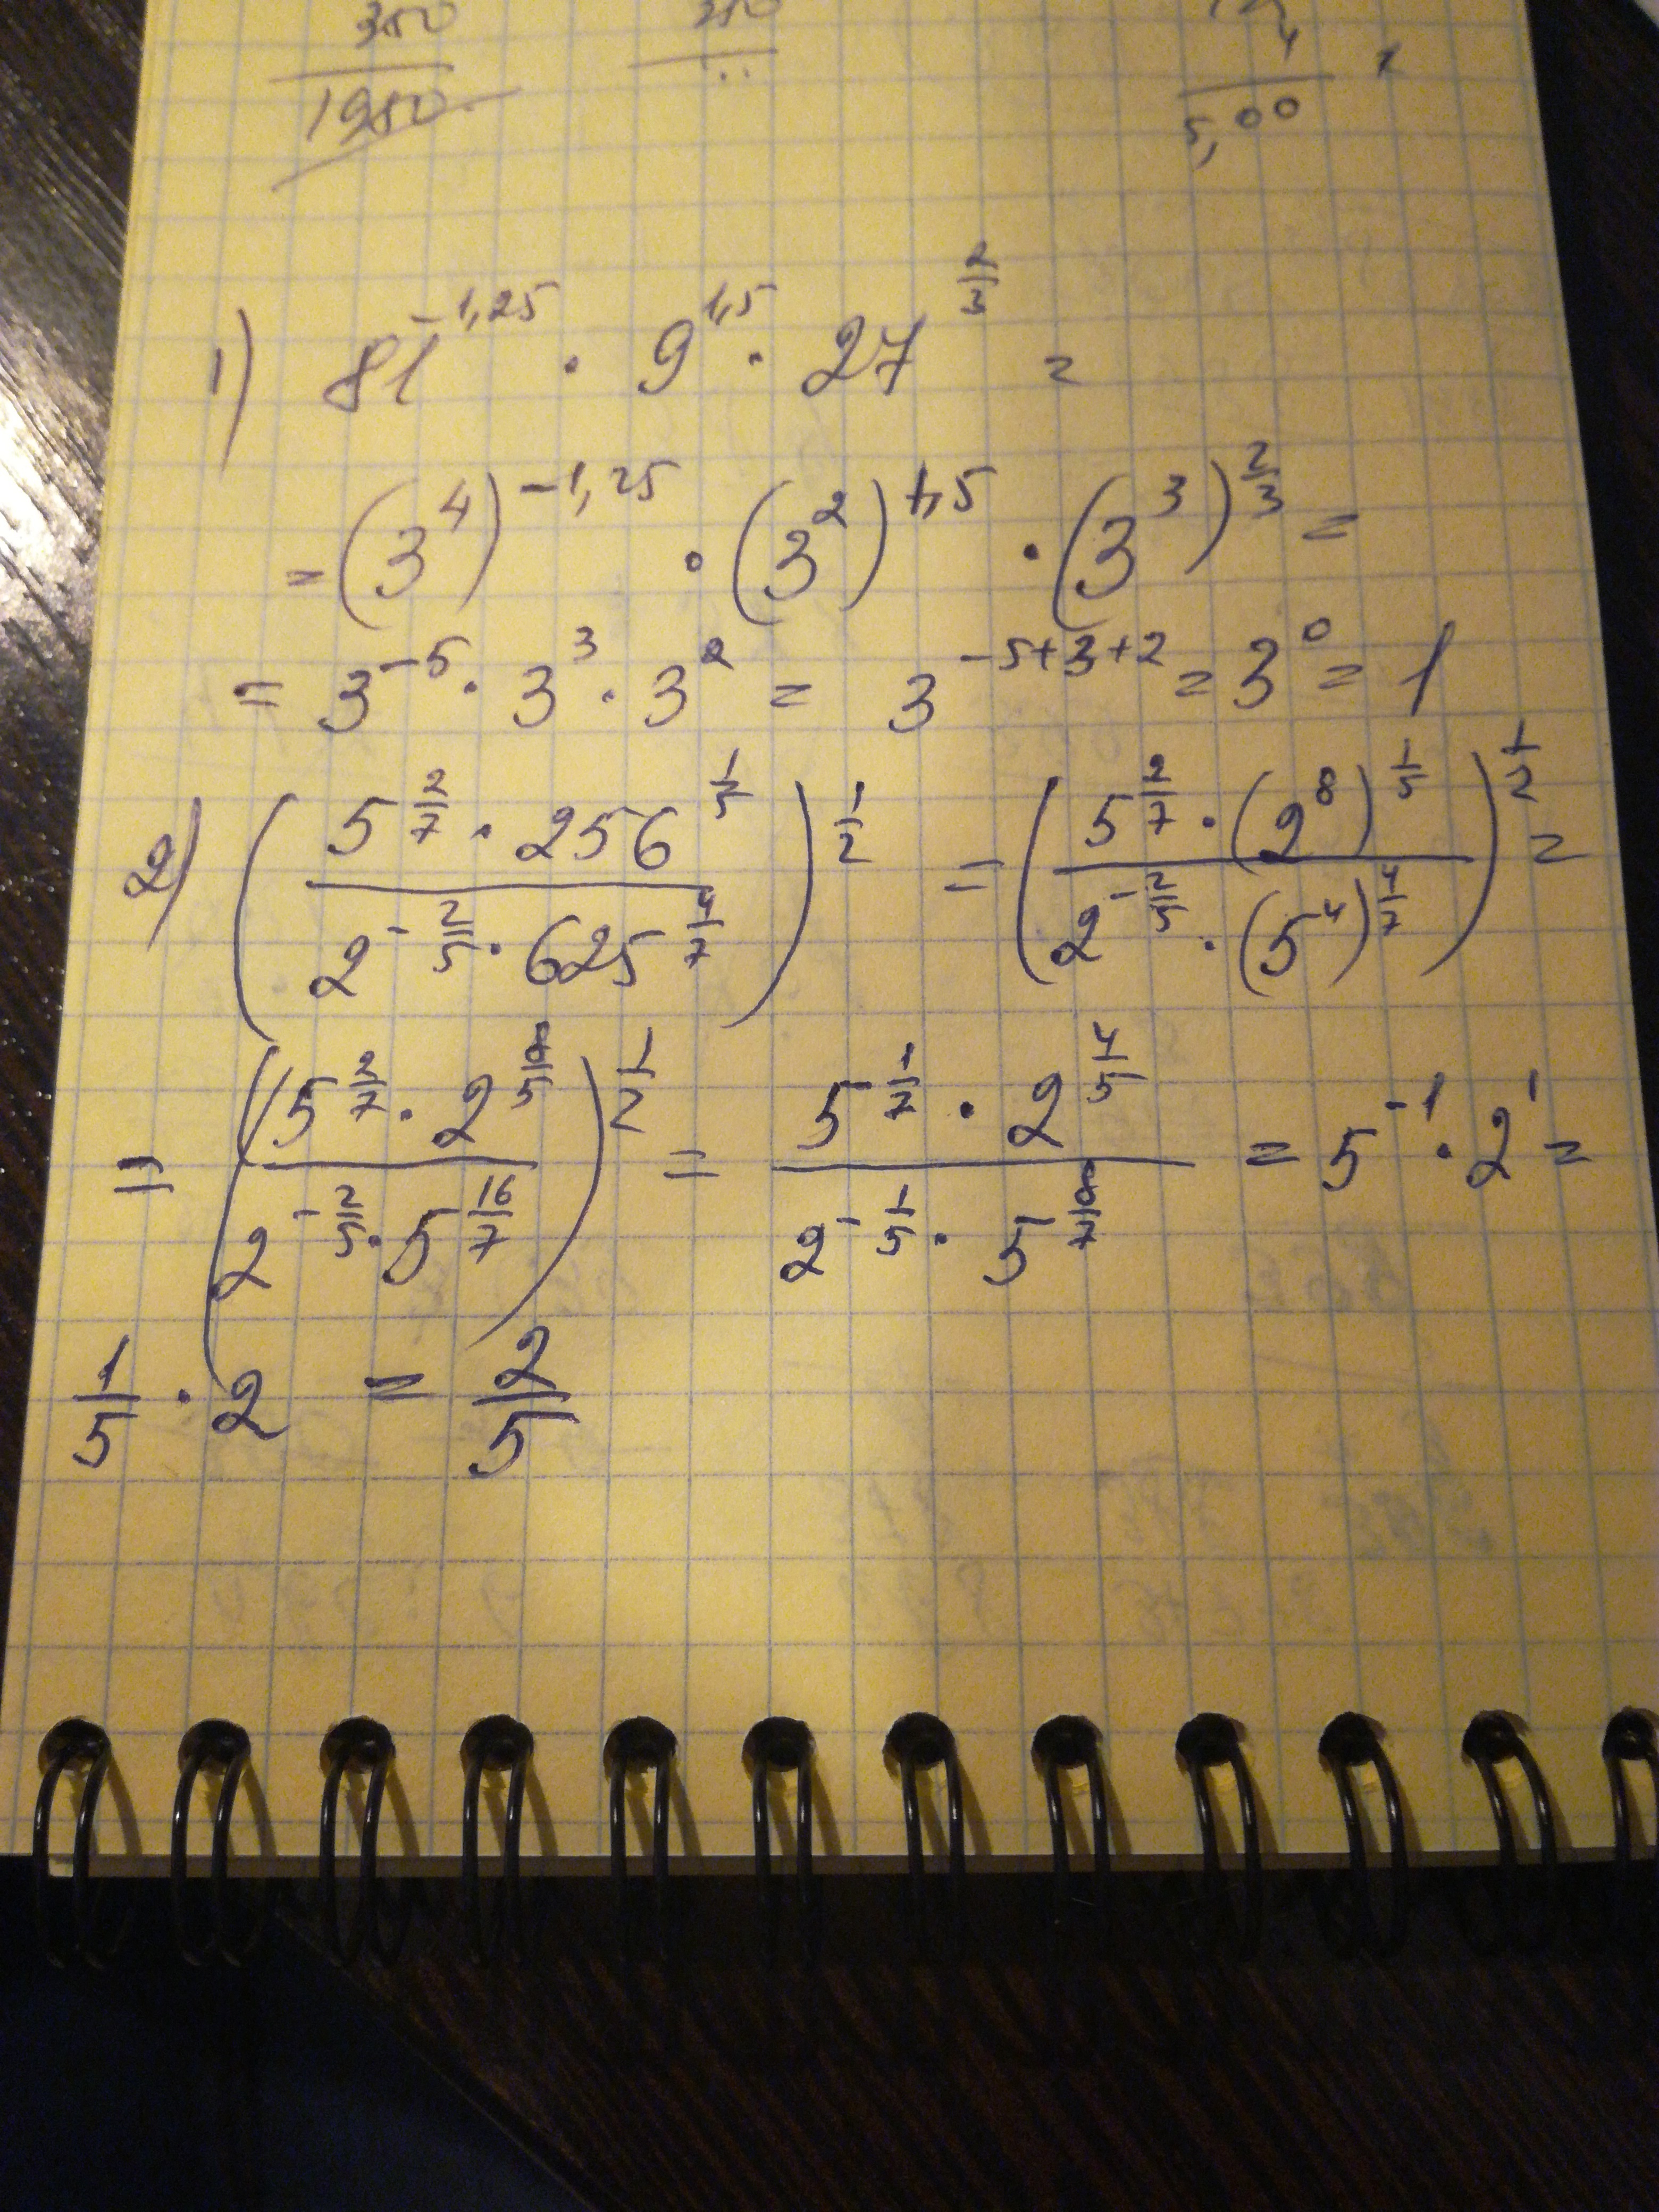 350 350 4
1980 5,00
1) 81^{-1,25} · 9^{1,5} · 27^{2/3} =
= (3^4)^{-1,25} · (3^2)^{1,5} · (3^3)^{2/3} =
= 3^{-5} · 3^3 · 3^2 = 3^{-5+3+2} = 3^0 = 1
2) ((5^{2/7} · 256^{1/5}) / (2^{-2/5} · 625^{4/7}))^{1/2} = ((5^{2/7} · (2^8)^{1/5}) / (2^{-2/5} · (5^4)^{4/7}))^{1/2} =
= ((5^{2/7} · 2^{8/5}) / (2^{-2/5} · 5^{16/7}))^{1/2} = (5^{1/7} · 2^{4/5}) / (2^{-1/5} · 5^{8/7}) = 5^{-1} · 2^1 =
1/5 · 2 = 2/5